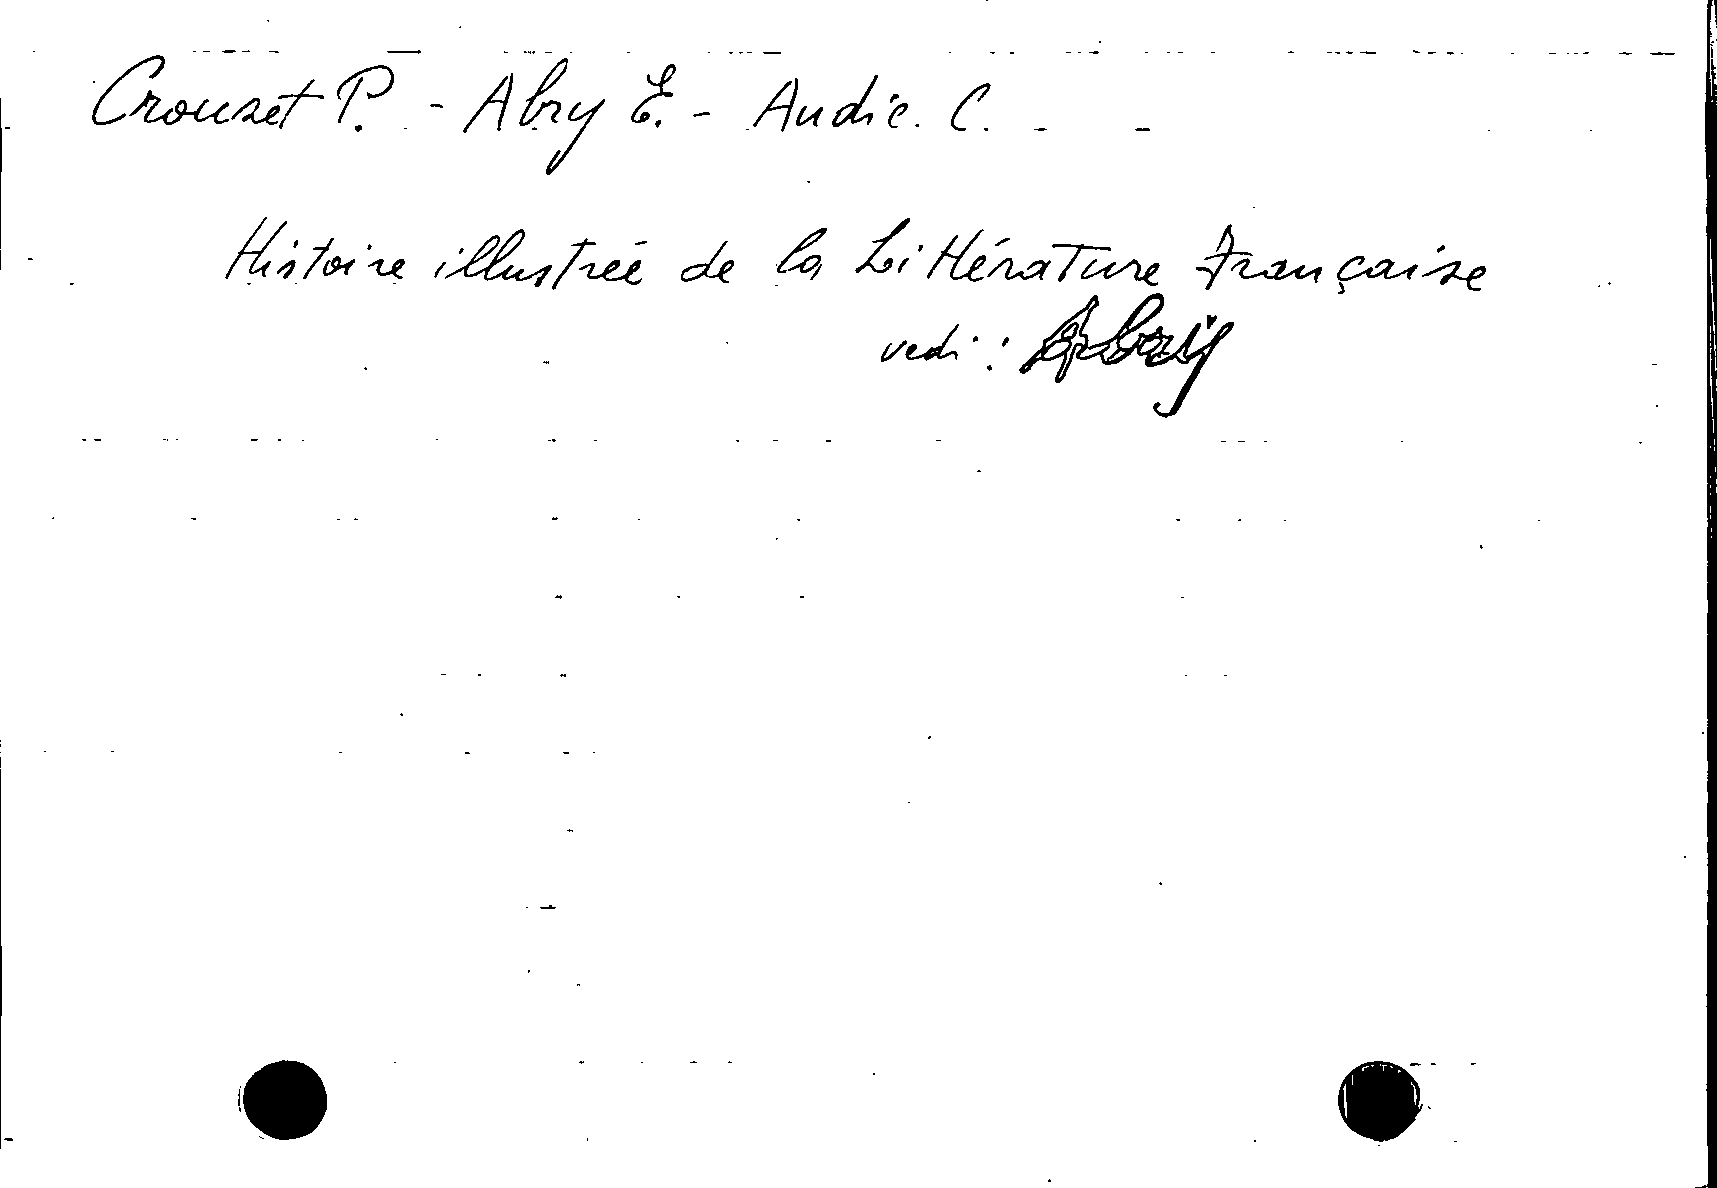 Crouzet P. - Abry E. - Audic. C.
Histoire illustrée de la Littérature Française
vedi: Abry